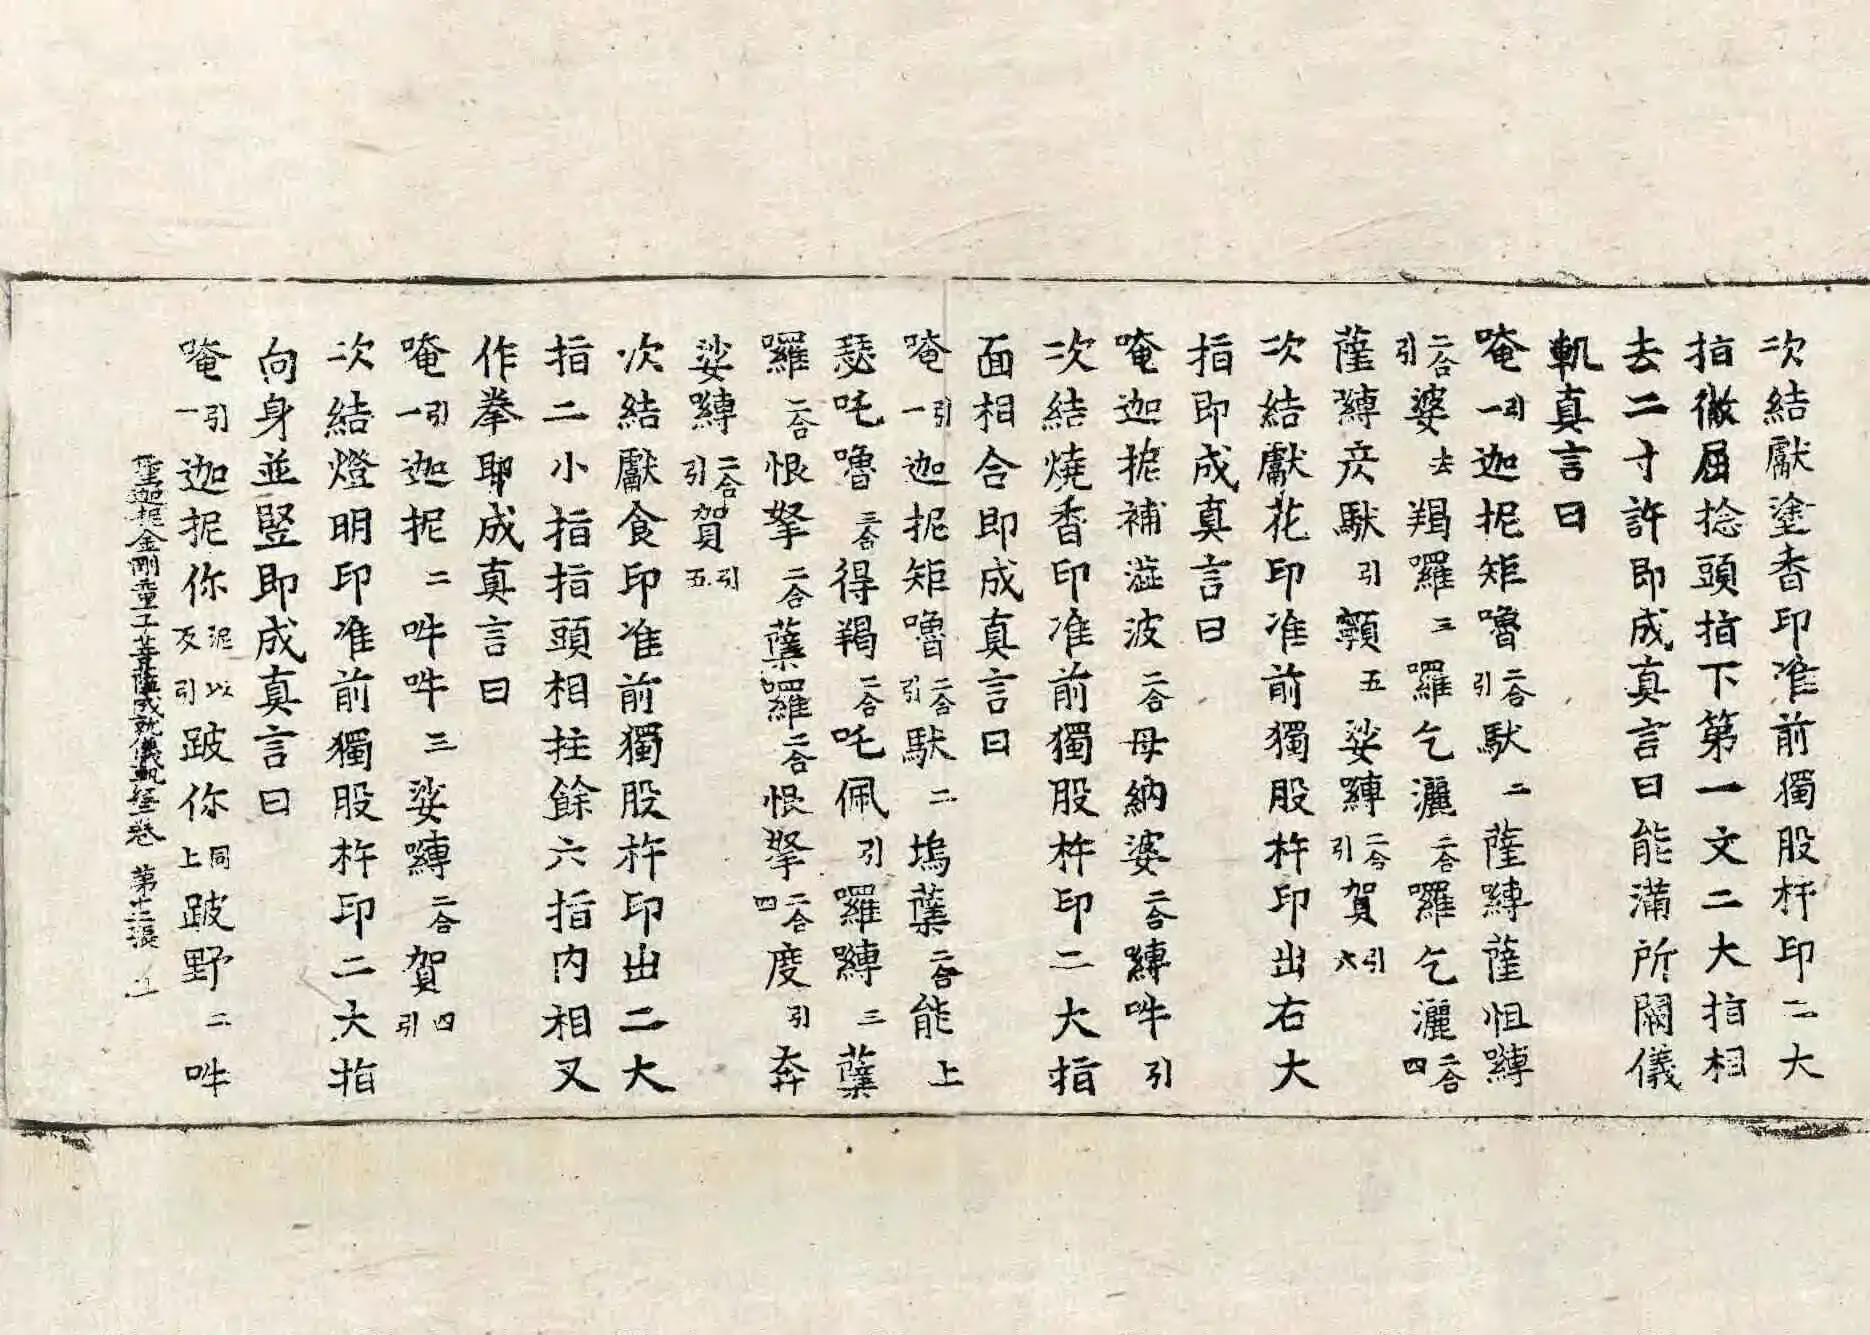 次結獻塗香印准前獨股杵印二大
指微屈捻頭指下第一文二大指相
去二寸許即成真言曰能滿所闕儀
軌真言曰
唵引一迦抳矩嚕二合引馱二薩嚩薩怛嚩
二合引婆去羯羅三囉乞灑二合囉乞灑二合四
薩嚩馱引顙五娑嚩二合引賀引六
次結獻花印准前獨股杵印出右大
指即成真言曰
唵迦抳補澁波二合母納婆二合嚩吽引
次結燒香印准前獨股杵印二大指
面相合即成真言曰
唵引一迦抳矩嚕二合引馱二塢蘖二合能上
瑟吒嚕三合得羯二合吒佩引囉嚩三蘖
囉二合恨拏二合蘖囉二合恨拏二合四度引奔
娑嚩二合引賀引五
次結獻食印准前獨股杵印出二大
指二小指指頭相拄餘六指内相叉
作拳即成真言曰
唵引一迦抳二吽吽三娑嚩二合賀四引
次結燈明印准前獨股杵印二大指
向身並竪即成真言曰
唵引一迦抳你泥以反引跛你同上跛野二吽
聖迦抳金剛童子菩薩成就儀軌經卷 第十二張